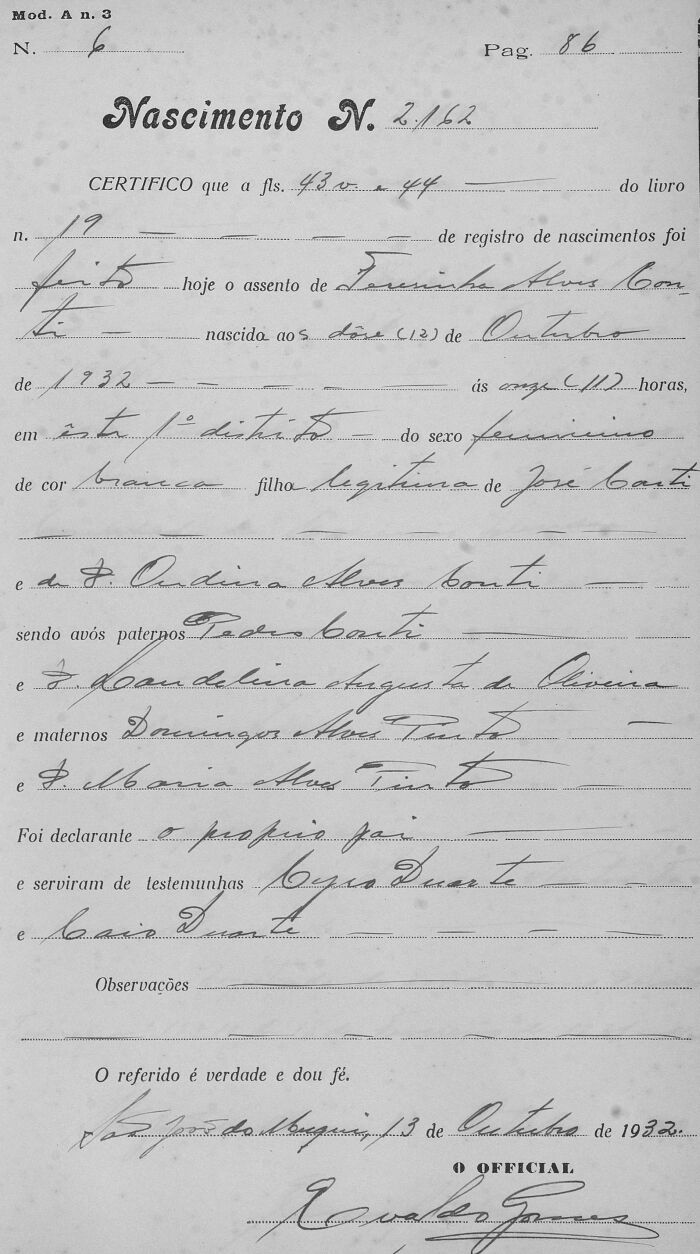 Mod. A n. 3
N. 6 Pag. 86
Nascimento N. 2.162
CERTIFICO que a fls. 43 v. e 44 do livro
n. 19 de registro de nascimentos foi
feito hoje o assento de Teresinha Alves Con-
ti nascida aos dôse (12) de Outubro
de 1932 ás onze (11) horas,
em êste 1º distrito do sexo feminino
de cor branca filha legitima de José Conti
e de D. Ondina Alves Conti
sendo avós paternos Pedro Conti
e D. Laudelina Augusta de Oliveira
e maternos Domingos Alves Pinto
e D. Maria Alves Pinto
Foi declarante o proprio pai
e serviram de testemunhas Cyro Duarte
e Caio Duarte
Observações
O referido é verdade e dou fé.
São João do Muqui, 13 de Outubro de 1932.
O OFFICIAL
Evaldo Gomes